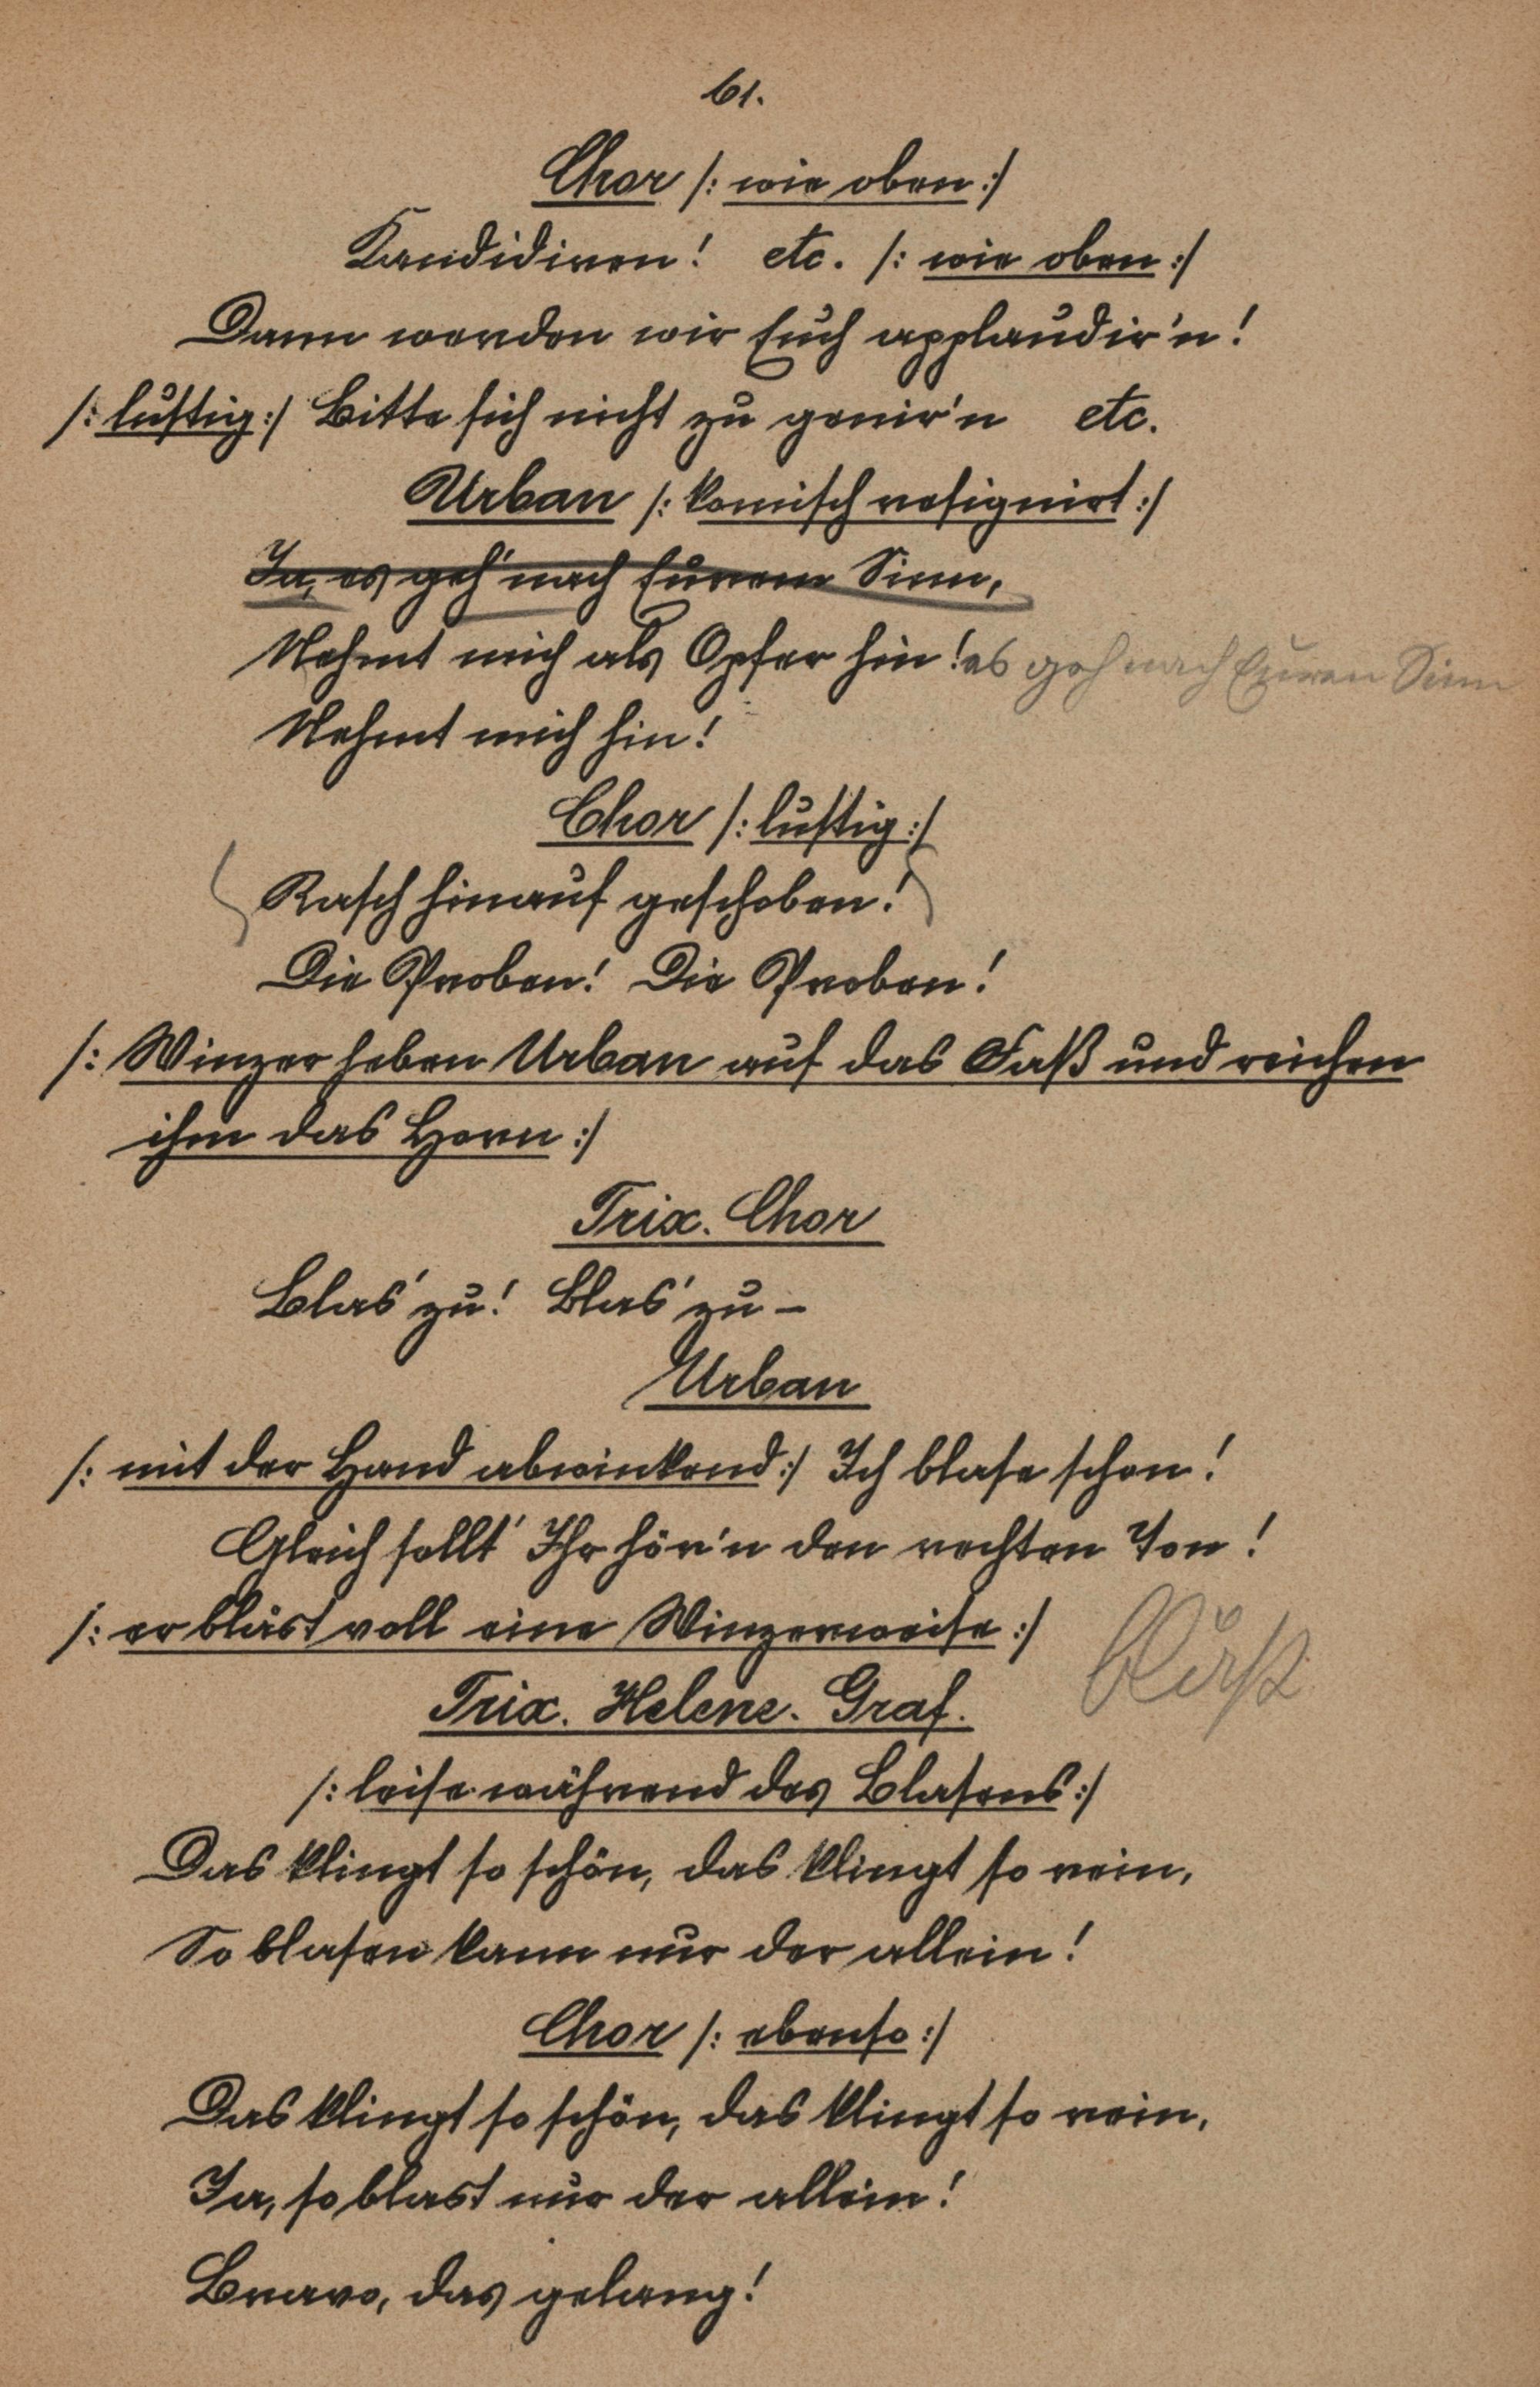 61.
Chor /: wie oben :/
Kandidiren! etc. /: wie oben :/
Dann werden wir Euch applaudir'n!
/: lustig :/ Bitte sich nicht zu genir'n etc.
Urban /: komisch resignirt :/
Ja, es geh' nach Eurem Sinn,
Nehmt mich als Opfer hin! es geh nach Euren Sinn
Nehmt mich hin!
Chor /: lustig :/
Rasch hinauf geschoben!
Die Proben! Die Proben!
/: Winzer heben Urban auf das Faß und reichen
ihm das Horn :/
Trix. Chor
Blas' zu! Blas' zu –
Urban
/: mit der Hand abwinkend :/ Ich blase schon!
Gleich sollt' Ihr hör'n den rechten Ton!
/: er bläst voll eine Winzerweise :/
bläst
Trix. Helene. Graf.
/: leise während des Blasens :/
Das klingt so schön, das klingt so rein,
So blasen kann nur der allein!
Chor /: ebenso :/
Das klingt so schön, das klingt so rein,
Ja, so blast nur der allein!
Bravo, das gelang!